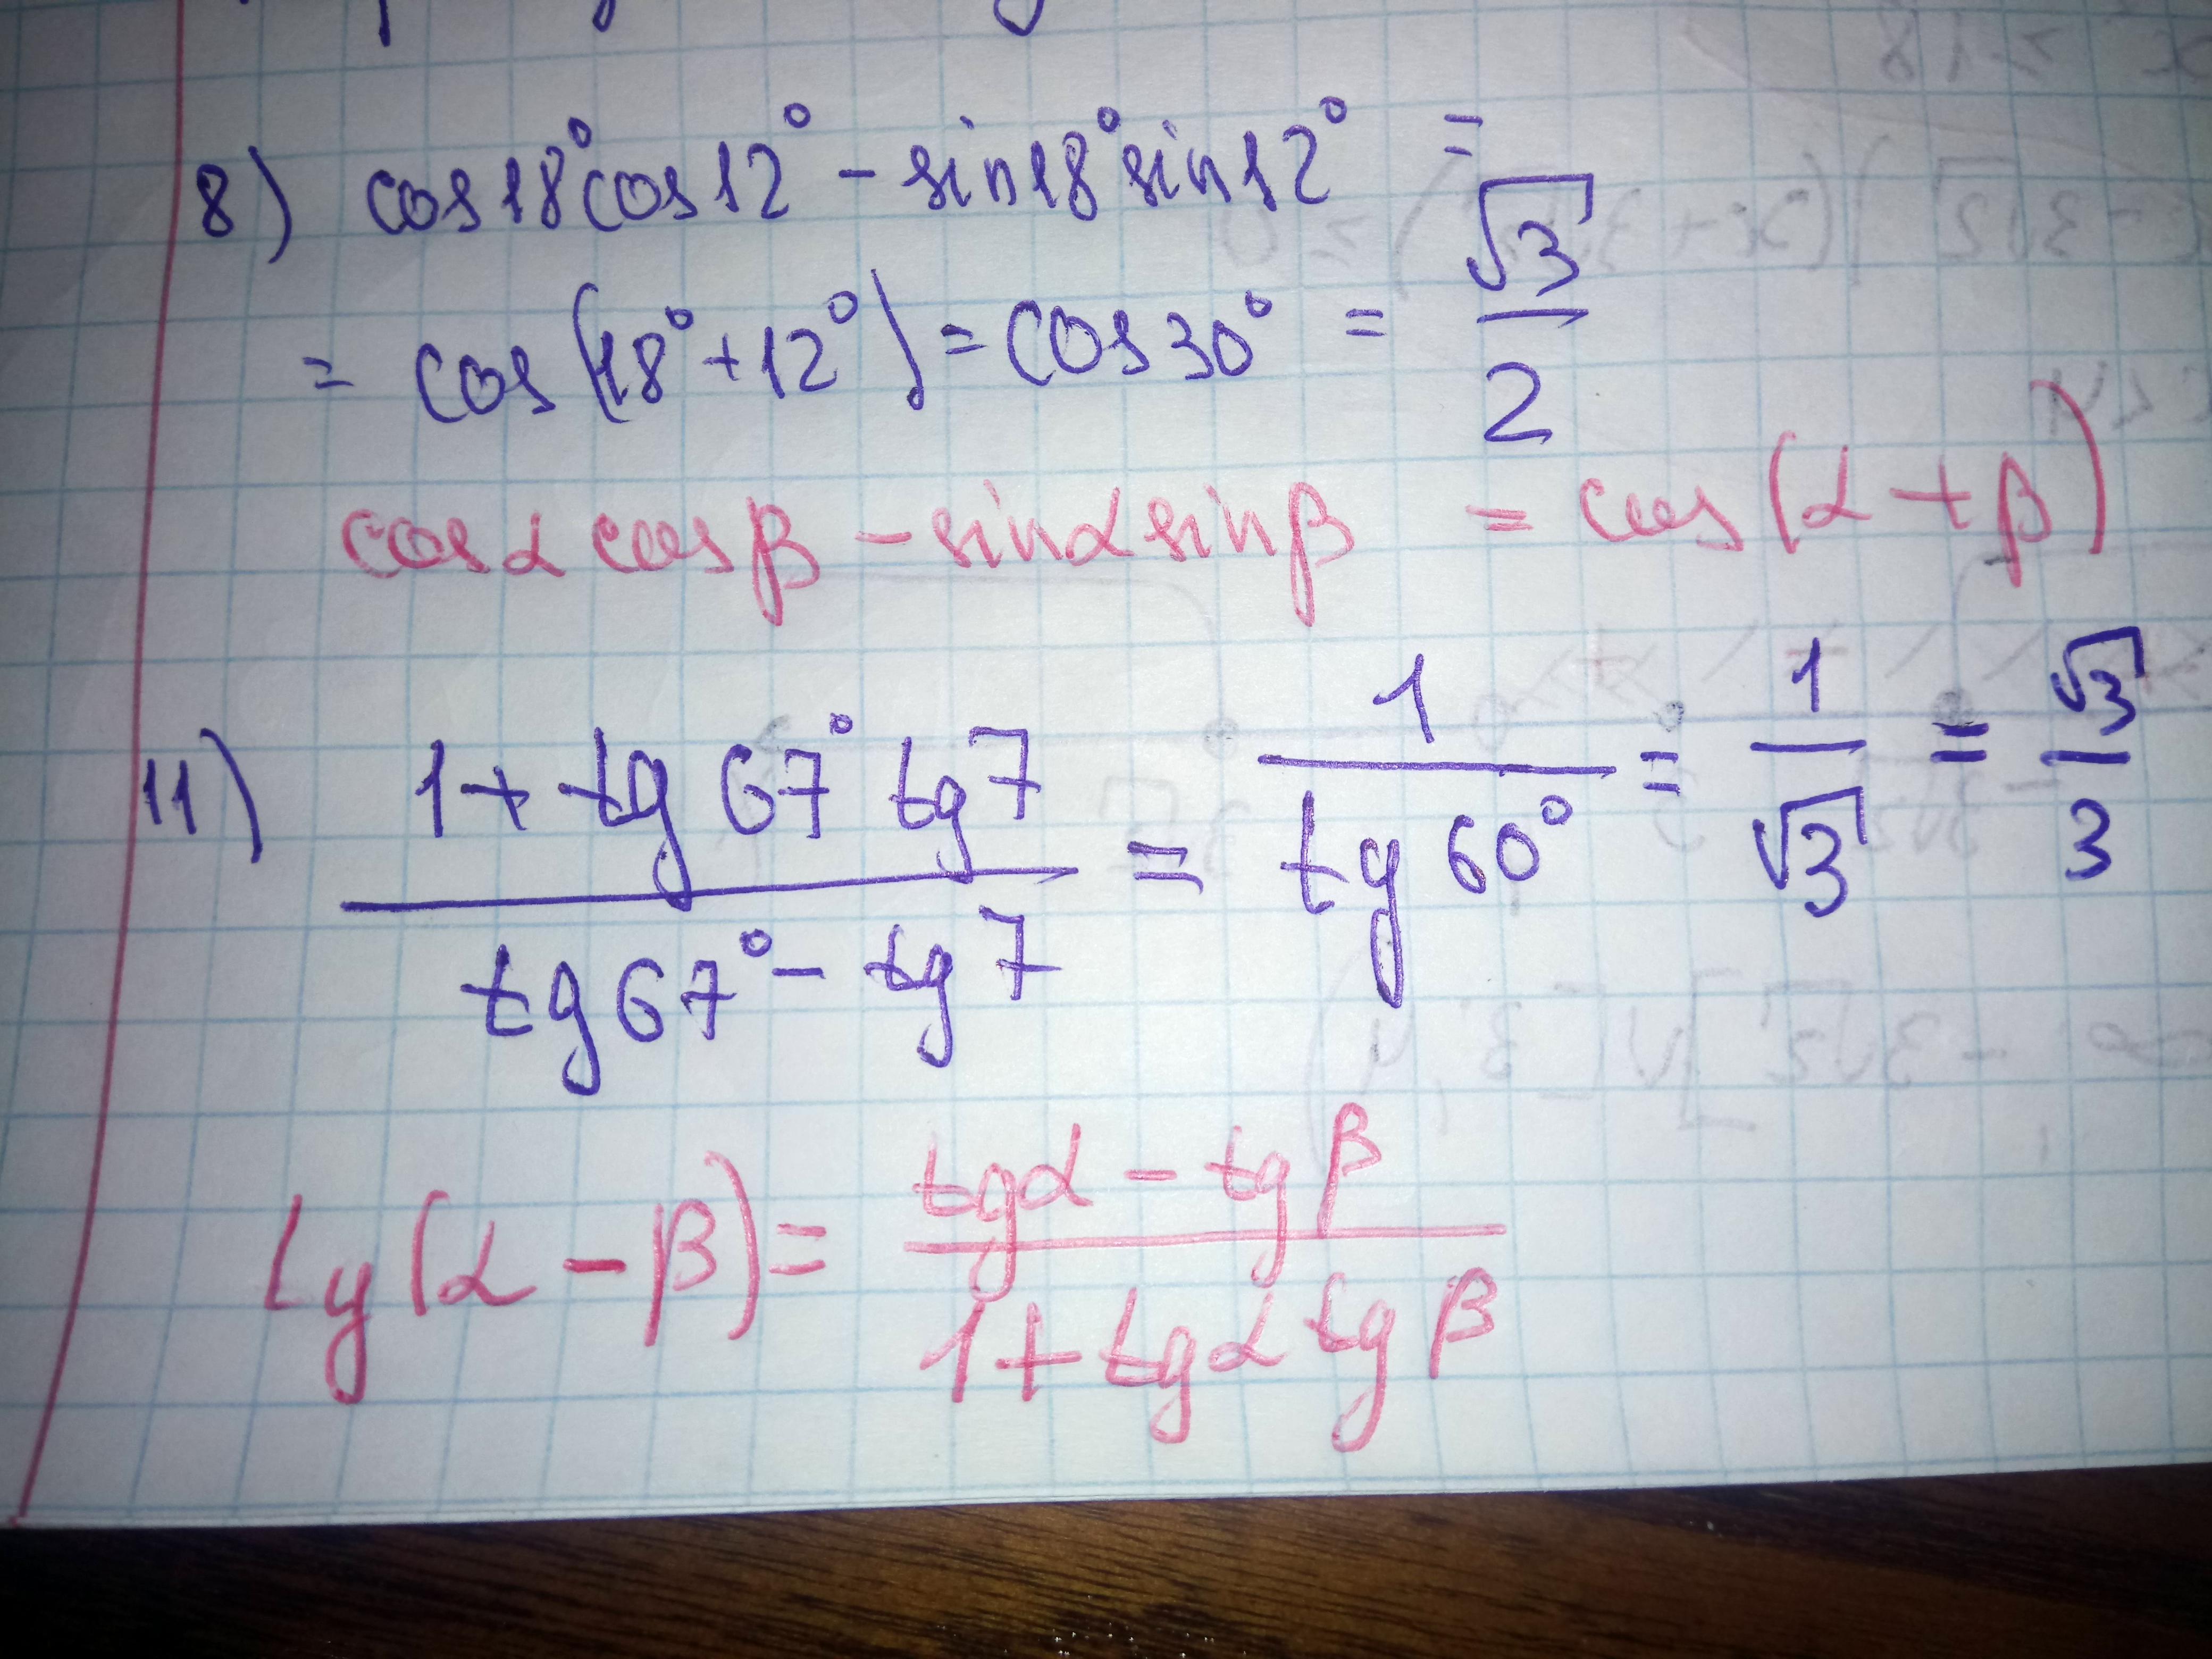 8) cos18°cos12° - sin18°sin12° =
= cos(18°+12°) = cos30° = √3/2
cosα cosβ - sinα sinβ = cos(α+β)
11) (1+tg67°tg7)/(tg67°-tg7) = 1/tg60° = 1/√3 = √3/3
tg(α-β) = (tgα - tgβ)/(1+tgα tgβ)